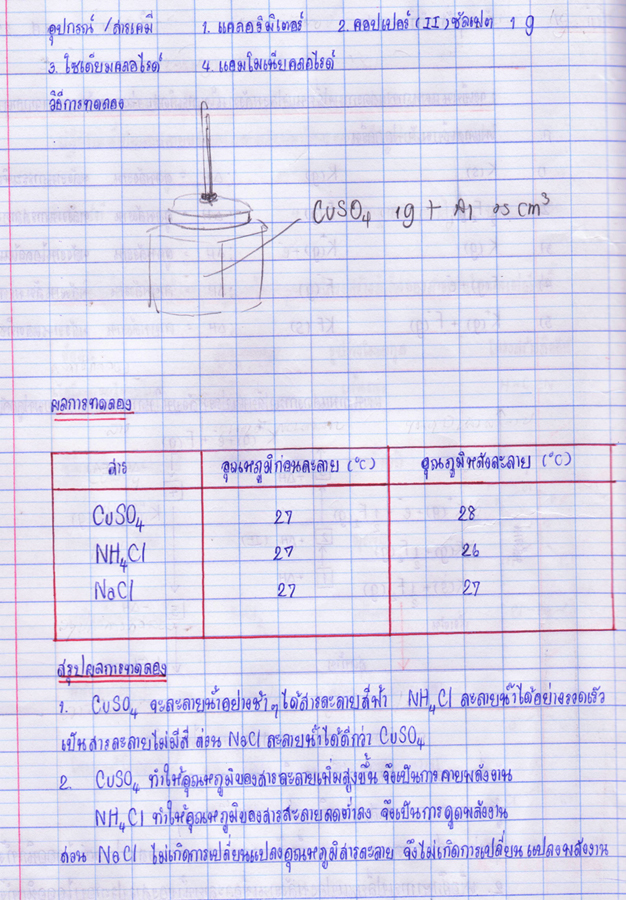 อุปกรณ์ / สารเคมี 1. แคลอริมิเตอร์ 2. คอปเปอร์ (II) ซัลเฟต 1 g
3. โซเดียมคลอไรด์ 4. แอมโมเนียคลอไรด์
วิธีการทดลอง
CuSO4 1g + น้ำ 25 cm3
ผลการทดลอง
สาร อุณหภูมิก่อนละลาย (°C) อุณภูมิหลังละลาย (°C)
CuSO4 27 28
NH4Cl 27 26
NaCl 27 27
สรุปผลการทดลอง
1. CuSO4 จะละลายน้ำอย่างช้าๆ ได้สารละลายสีฟ้า NH4Cl ละลายน้ำได้อย่างรวดเร็ว
เป็นสารละลายไม่มีสี ส่วน NaCl ละลายน้ำได้ดีกว่า CuSO4
2. CuSO4 ทำให้อุณหภูมิของสารละลายเพิ่มสูงขึ้น จึงเป็นการคายพลังงาน
NH4Cl ทำให้อุณหภูมิของสารละลายลดต่ำลง จึงเป็นการดูดพลังงาน
ส่วน NaCl ไม่เกิดการเปลี่ยนแปลงอุณหภูมิสารละลาย จึงไม่เกิดการเปลี่ยนแปลงพลังงาน